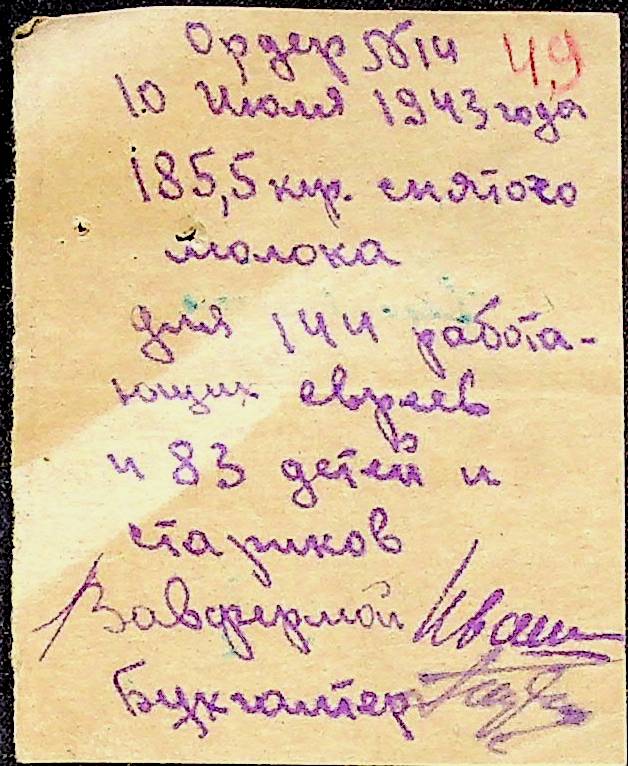 Ордер №14 49
10 Июля 1943 года
185,5 кгр. снятого
молока
для 144 работа-
ющих евреев
и 83 детей и
стариков
Завфермой
Бухгалтер